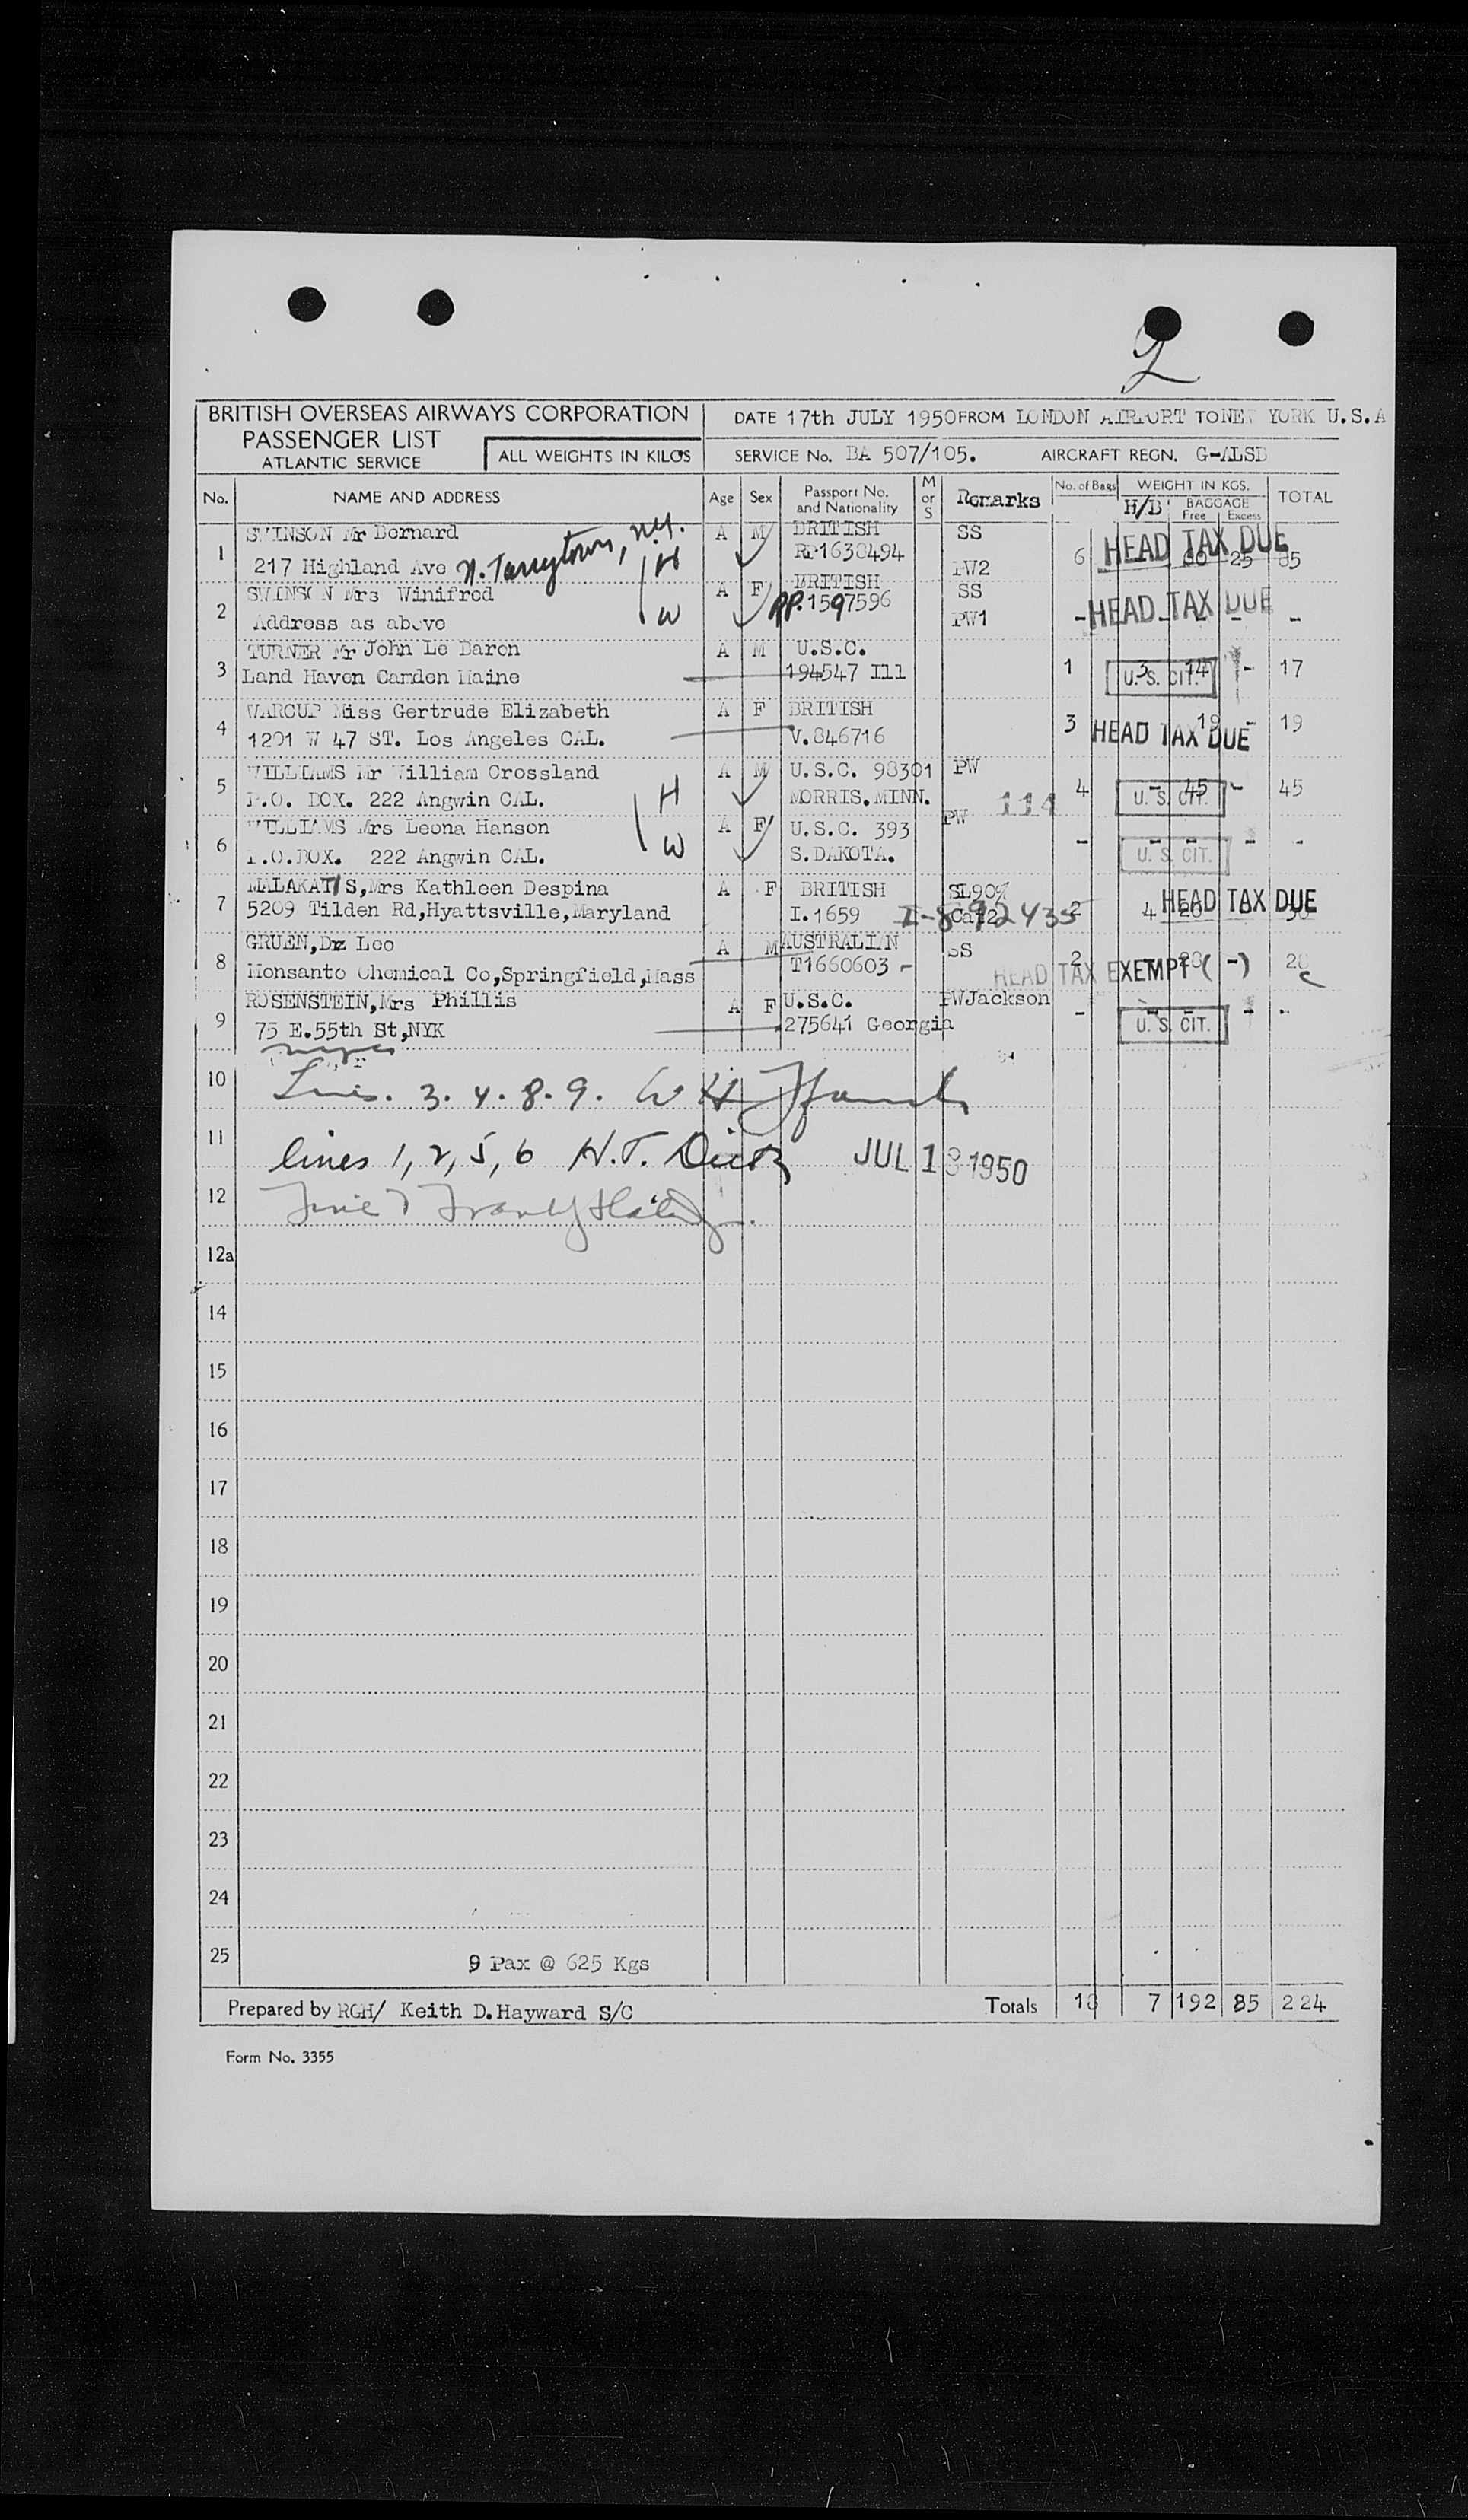 2
BRITISH OVERSEAS AIRWAYS CORPORATION
PASSENGER LIST
ATLANTIC SERVICE
ALL WEIGHTS IN KILOS
DATE 17th JULY 1950 FROM LONDON AIRPORT TO NEW YORK U.S.A
SERVICE No. BA 507/105. AIRCRAFT REGN. G-ALSD
No. NAME AND ADDRESS Age Sex Passport No. and Nationality M or S Remarks No. of Bags WEIGHT IN KGS. H/B BAGGAGE Free Excess TOTAL
1 SWINSON Mr Bernard A M BRITISH SS HEAD TAX DUE
217 Highland Ave N. Tarrytown, N.Y. H RP1638494 PW2 6 60 25 85
2 SWINSON Mrs Winifred A F BRITISH SS HEAD TAX DUE
Address as above W PP.1597596 PW1 - - - - -
3 TURNER Mr John Le Baron A M U.S.C.
Land Haven Camden Maine 194547 Ill 1 3 14 - 17 U. S. CIT.
4 WARCUP Miss Gertrude Elizabeth A F BRITISH
1201 W 47 ST. Los Angeles CAL. V.846716 3 19 - 19 HEAD TAX DUE
5 WILLIAMS Mr William Crossland A M U.S.C. 98301 PW
P.O. BOX. 222 Angwin CAL. H MORRIS.MINN. 114 4 - 45 - 45 U. S. CIT.
6 WILLIAMS Mrs Leona Hanson A F U.S.C. 393 PW
P.O.BOX. 222 Angwin CAL. W S.DAKOTA. - - - - - U. S. CIT.
7 MALAKATIS,Mrs Kathleen Despina A F BRITISH SL90% HEAD TAX DUE
5209 Tilden Rd,Hyattsville,Maryland I.1659 I-892435 2 4
8 GRUEN,Dr Leo A M AUSTRALIAN SS
Monsanto Chemical Co,Springfield,Mass T1660603 - 2 HEAD TAX EXEMPT ( - )
9 ROSENSTEIN,Mrs Phillis A F U.S.C. PWJackson
75 E.55th St,NYK 275641 Georgia - - - - U. S. CIT.
10 3. 4. 8. 9. W H
11 lines 1, 2, 5, 6 H.T. JUL 18 1950
12
12a
14
15
16
17
18
19
20
21
22
23
24
25 9 Pax @ 625 Kgs
Prepared by RGH/ Keith D.Hayward S/C Totals 18 7 192 85 224
Form No. 3355